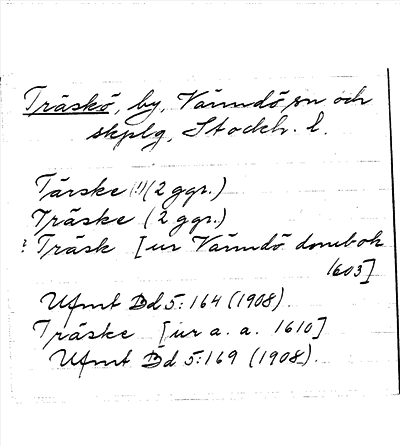 Träskö, by, Värmdö sn och
skplg, Stockh. l.
Tärske (!) (2 ggr.)
Träske (2 ggr.)
? Träsk [ur Värmdö dombok
1603]
Ufmt Bd 5:164 (1908).
Träske [ur a. a. 1610]
Ufmt Bd 5:169 (1908).